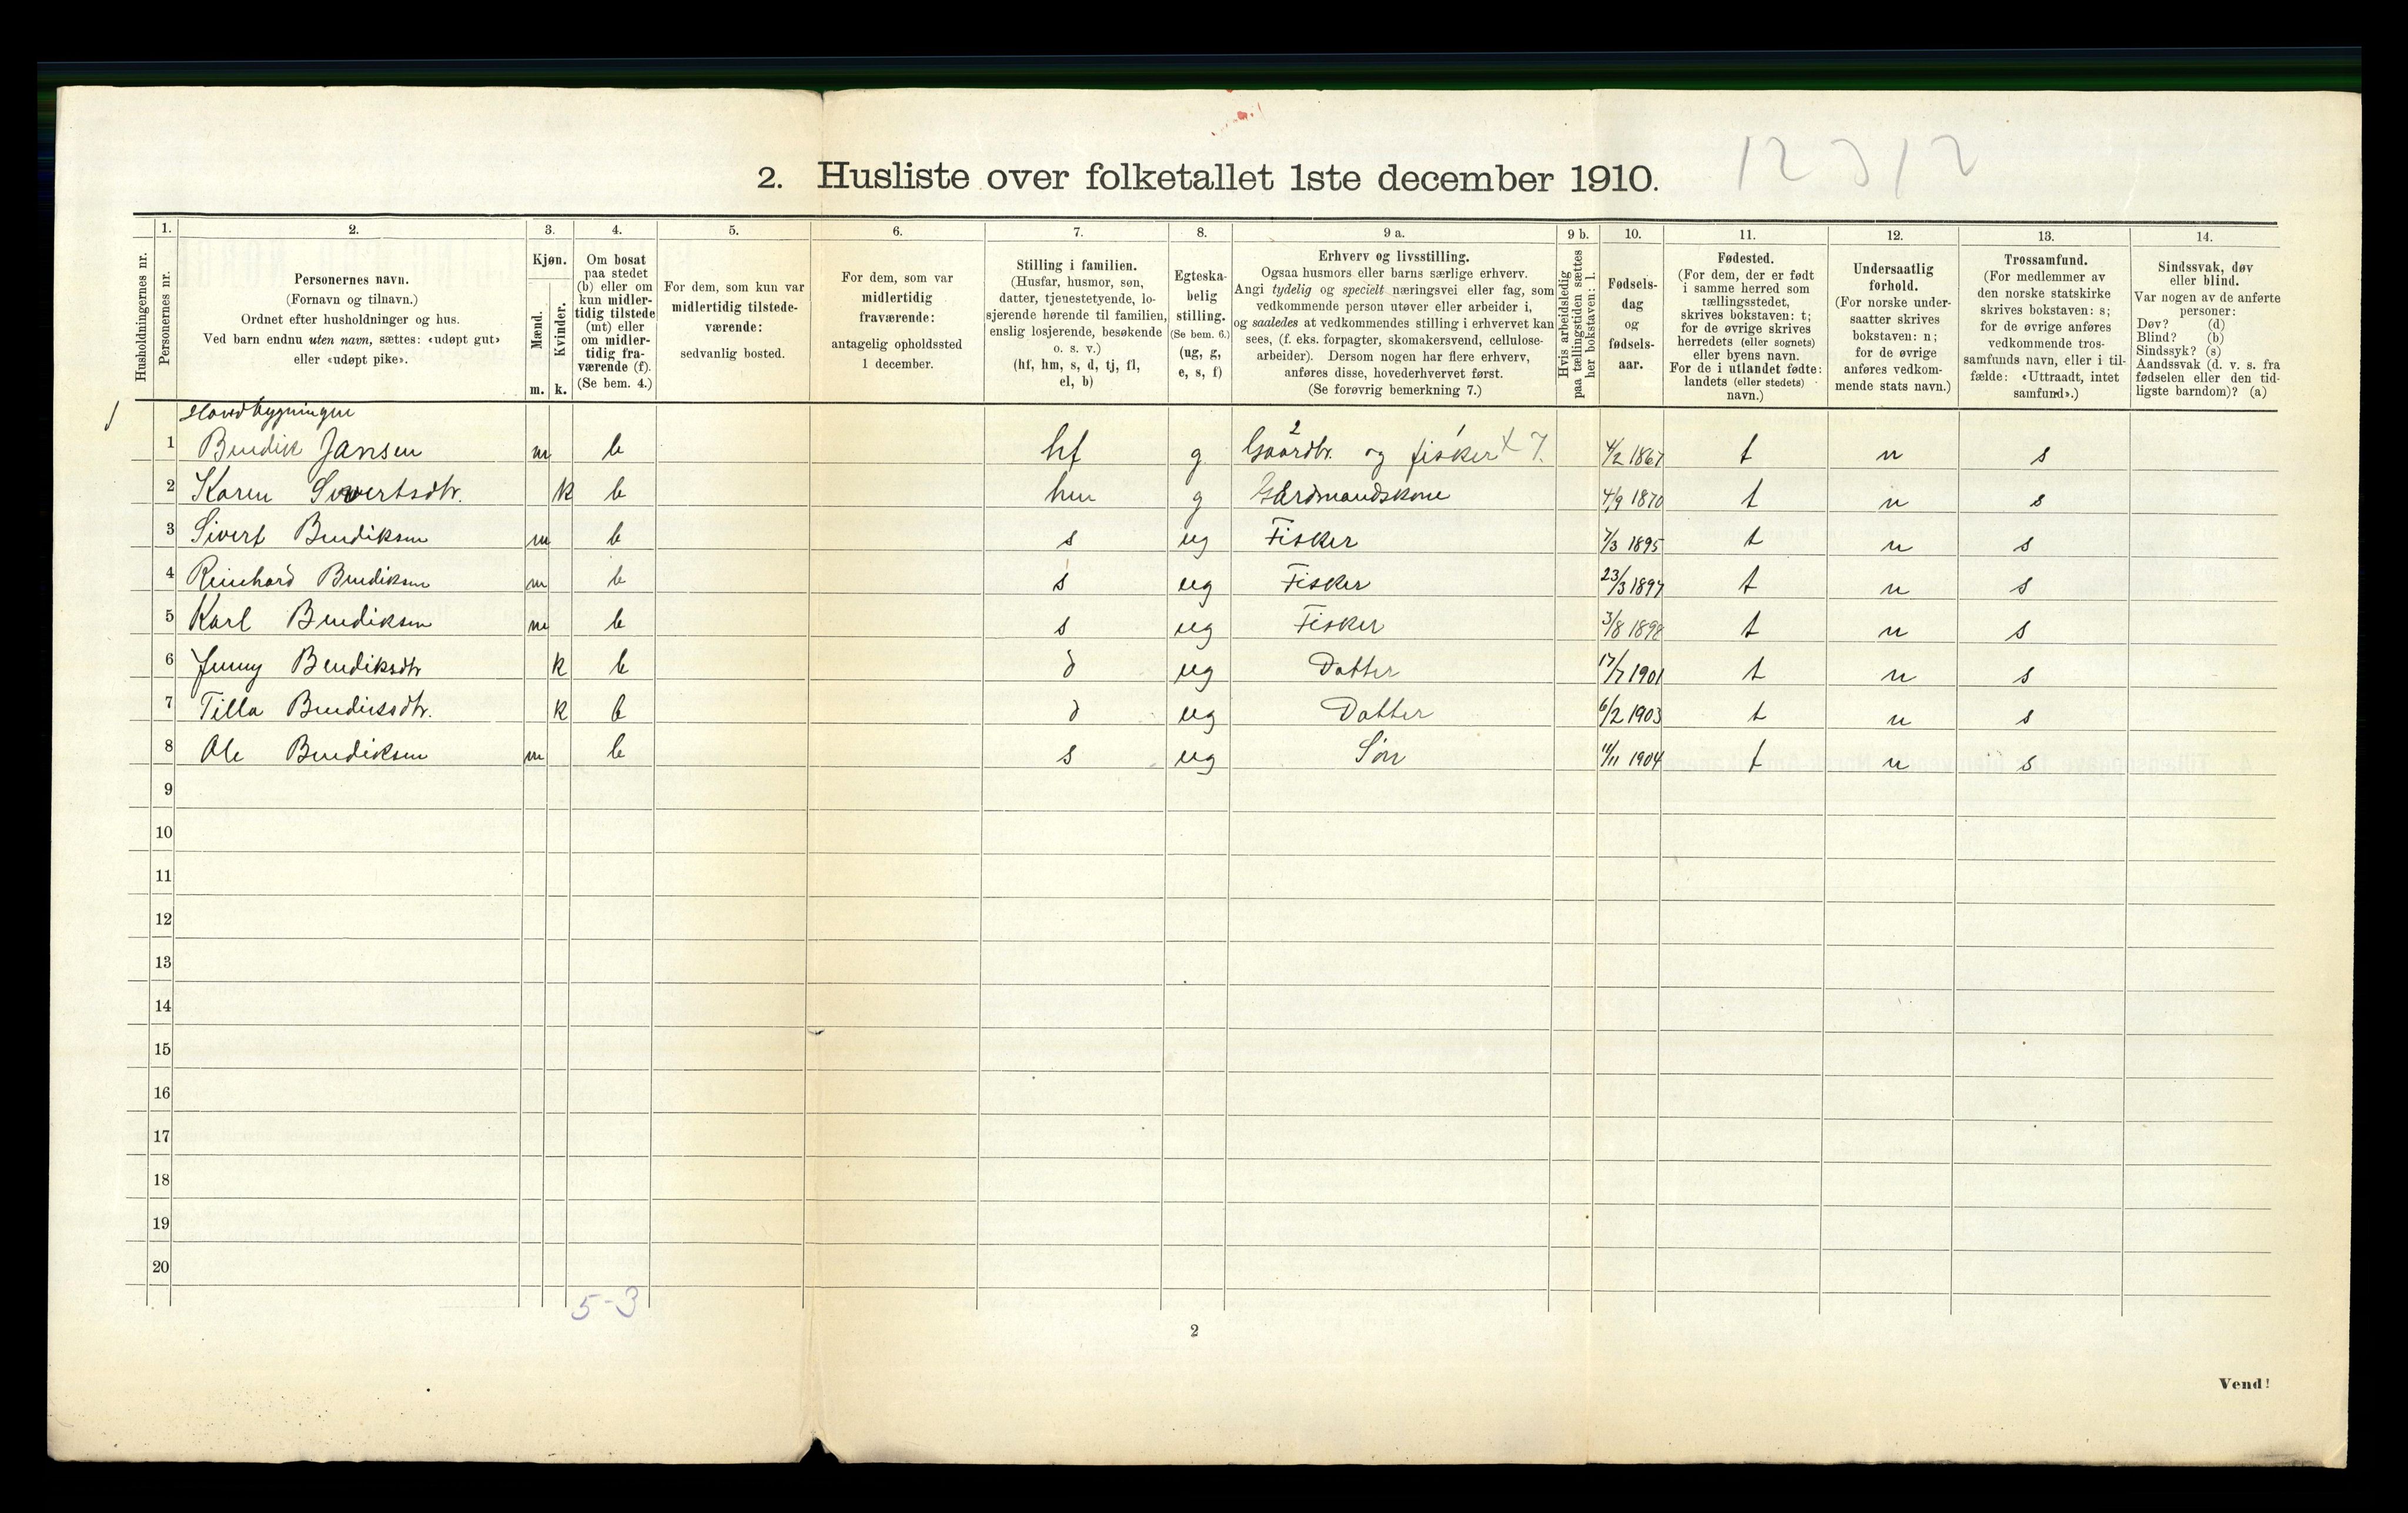 2. Husliste over folketallet 1ste december 1910.
12312
Husholdningernes nr.
1.
Personernes nr.
2.
Personernes navn.
(Fornavn og tilnavn.)
Ordnet efter husholdninger og hus.
Ved barn endnu uten navn, sættes: «udøpt gut»
eller «udøpt pike».
3.
Kjøn.
Mænd.
m.
Kvinder.
k.
4.
Om bosat
paa stedet
(b) eller om
kun midler-
tidig tilstede
(mt) eller
om midler-
tidig fra-
værende (f).
(Se bem. 4.)
5.
For dem, som kun var
midlertidig tilstede-
værende:
sedvanlig bosted.
6.
For dem, som var
midlertidig
fraværende:
antagelig opholdssted
1 december.
7.
Stilling i familien.
(Husfar, husmor, søn,
datter, tjenestetyende, lo-
sjerende hørende til familien,
enslig losjerende, besøkende
o. s. v.)
(hf, hm, s, d, tj, fl,
el, b)
8.
Egteska-
belig
stilling.
(Se bem. 6.)
(ug, g,
e, s, f)
9 a.
Erhverv og livsstilling.
Ogsaa husmors eller barns særlige erhverv.
Angi tydelig og specielt næringsvei eller fag, som
vedkommende person utøver eller arbeider i,
og saaledes at vedkommendes stilling i erhvervet kan
sees, (f. eks. forpagter, skomakersvend, cellulose-
arbeider). Dersom nogen har flere erhverv,
anføres disse, hovederhvervet først.
(Se forøvrig bemerkning 7.)
9 b.
Hvis arbeidsledig
paa tællingstiden sættes
her bokstaven: l.
10.
Fødsels-
dag
og
fødsels-
aar.
11.
Fødested.
(For dem, der er født
i samme herred som
tællingsstedet,
skrives bokstaven: t;
for de øvrige skrives
herredets (eller sognets)
eller byens navn.
For de i utlandet fødte:
landets (eller stedets)
navn.)
12.
Undersaatlig
forhold.
(For norske under-
saatter skrives
bokstaven: n;
for de øvrige
anføres vedkom-
mende stats navn.)
13.
Trossamfund.
(For medlemmer av
den norske statskirke
skrives bokstaven: s;
for de øvrige anføres
vedkommende tros-
samfunds navn, eller i til-
fælde: «Uttraadt, intet
samfund».)
14.
Sindssvak, døv
eller blind.
Var nogen av de anførte
personer:
Døv? (d)
Blind? (b)
Sindssyk? (s)
Aandssvak (d. v. s. fra
fødselen eller den tid-
ligste barndom)? (a)
1 Hovedbygningen
1 Bendik Jansen m b hf g Gaardbr. 2 og fisker 1 X 7. 4/2 1867 t n s
2 Karen Sivertsdtr. k b hm g Gårdmandskone 4/9 1870 t n s
3 Sivert Bendiksen m b s ug Fisker 7/3 1895 t n s
4 Reinhard Bendiksen m b s ug Fisker 23/3 1897 t n s
5 Karl Bendiksen m b s ug Fisker 3/8 1898 t n s
6 Jenny Bendiksdtr k b d ug Datter 17/7 1901 t n s
7 Tilla Bendiksdtr. k b d ug Datter 6/2 1903 t n s
8 Ole Bendiksen m b s ug Søn 11/11 1904 t n s
9
10
11
12
13
14
15
16
17
18
19
20
5-3
2
Vend!